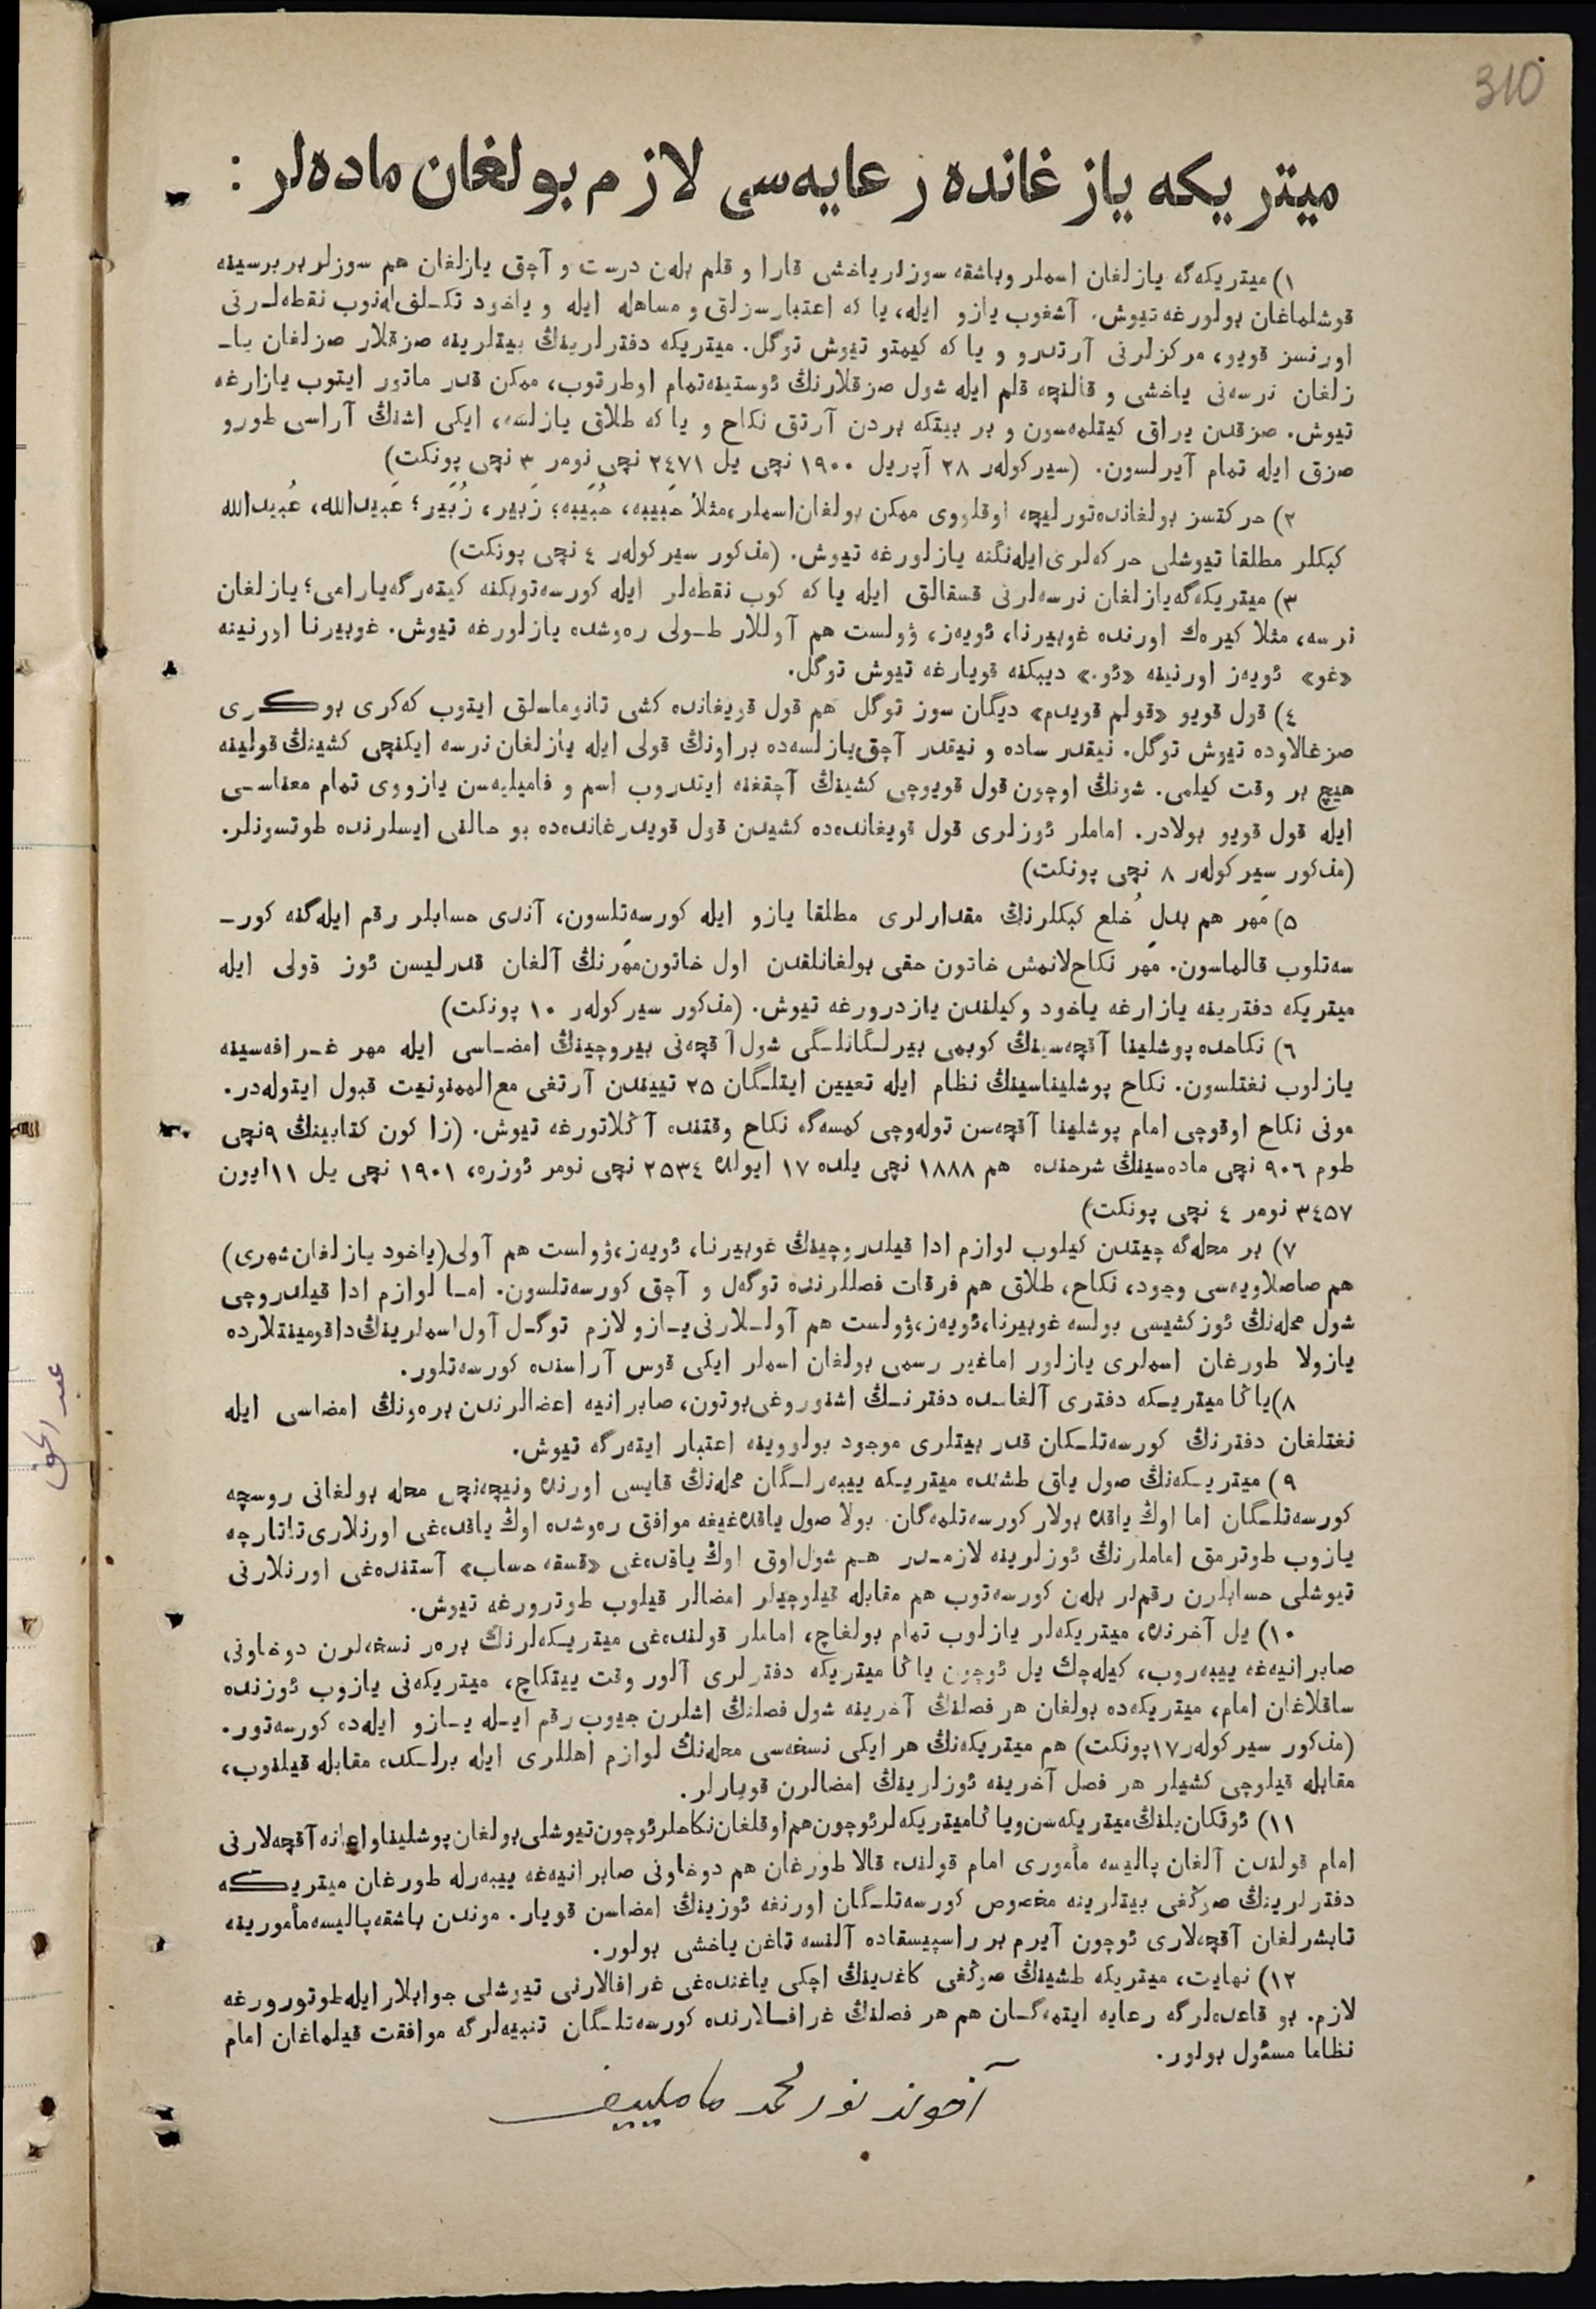 310
میتریكه یازغانده رعایه‌سی لازم بولغان ماده‌لر :
۱) میتریكه‌گه یازلغان اسملر وباشقه سوزلر یاخشی قارا و قلم بله‌ن درست و آچق یازلغان هم سوزلر بربرسینه
قوشلماغان بولورغه تیوش. آشغوب یازو ایله، یا كه اعتبارسزلق و مساهله ایله و یاخود تكـلف‌له‌نوب نقطه‌لـرنی
اورنسز قویو، مركزلرنی آرتدرو و یا كه كیمتو تیوش توگل. میتریكه دفترلرینڭ بیتلرینه صزقلار صزلغان یا-
زلغان نرسه‌نی یاخشی و قالنچه قلم ایله شول صزقلارنڭ ئوستینه تمام اوطرتوب، ممكن قدر ماتور ایتوب یازارغه
تیوش. صزقدن یراق كیتلمه‌سون و بر بیتكه بردن آرتق نكاح و یا كه طلاق یازلسه، ایكی اشنڭ آراسی طورو
صزق ایله تمام آیرلسون. (سیركوله‌ر ۲۸ آپریل ۱۹۰۰ نچی یل ۲٤۷۱ نچی نومر ۳ نچی پونكت)
۲) حركتسز بولغانده تورلیچه اوقلووی ممكن بولغان اسملر، مثلا حَبیبه، حُبَیبه؛ زَبیر، زُبَیر؛ عَبیدالله، عُبیدالله
كبكلر مطلقا تیوشلی حركه‌لری ایله‌نگنه یازلورغه تیوش. (مذكور سیركوله‌ر ٤ نچی پونكت)
۳) میتریكه‌گه یازلغان نرسه‌لرنی قسقالق ایله یا كه كوب نقطه‌لر ایله كورسه‌توبكنه كیته‌رگه یارامی؛ یازلغان
نرسه، مثلا كیره‌ك اورنده غوبیرنا، ئویه‌ز، ۋولست هم آوللار طـولی ره‌وشده یازلورغه تیوش. غوبیرنا اورنینه
«غو» ئویه‌ز اورنینه «ئو.» دیبكنه قویارغه تیوش توگل.
٤) قول قویو «قولم قویدم» دیگان سوز توگل هم قول قویغانده كشی تانوماسلق ایتوب كه‌كری بوكـری
صزغالاوده تیوش توگل. نیقدر ساده و نیقدر آچق یازلسه‌ده براونڭ قولی ایله یازلغان نرسه ایكنچی كشینڭ قولینه
هیچ بر وقت كیلمی. شونڭ اوچون قول قویوچی كشینڭ آچقغنه ایتدروب اسم و فامیلیه‌سن یازووی تمام معناسـی
ایله قول قویو بولادر. اماملر ئوزلری قول قویغانده‌ده كشیدن قول قویدرغانده‌ده بو حالنی ایسلرنده طوتسونلر.
(مذكور سیركوله‌ر ۸ نچی پونكت)
۵) مَهر هم بدلِ خُلع كبكلرنڭ مقدارلری مطلقا یازو ایله كورسه‌تلسون، آندی حسابلر رقم ایله‌گنه كور-
سه‌تلوب قالماسون. مَهر نكاح‌لانمش خاتون حقی بولغانلقدن اول خاتون مَهرنڭ آلغان قدرلیسن ئوز قولی ایله
میتریكه دفترینه یازارغه یاخود وكیلندن یازدرورغه تیوش. (مذكور سیركوله‌ر ۱۰ پونكت)
٦) نكاحده پوشلینا آقچه‌سینڭ كوبمی بیرلـگانلـگی شول آقچه‌نی بیروچینڭ امضـاسی ایله مهر غـرافه‌سینه
یازلوب نغتلسون. نكاح پوشلیناسینڭ نظام ایله تعیین ایتلـگان ۲۵ تییندن آرتغی مع‌الممنونیت قبول ایتوله‌در.
مونی نكاح اوقوچی امام پوشلینا آقچه‌سن توله‌وچی كمسه‌گه نكاح وقتنده آڭلاتورغه تیوش. (زاكون كتابینڭ ۹نچی
طوم ۹۰٦ نچی ماده‌سینڭ شرحنده هم ۱۸۸۸ نچی یلده ۱۷ ایولده ۲۵۳٤ نچی نومر ئوزره، ۱۹۰۱ نچی یل ۱۱ ایون
۳٤۵۷ نومر ٤ نچی پونكت)
۷) بر محله‌گه چیتدن كیلوب لوازم ادا قیلدروچینڭ غوبیرنا، ئویه‌ز، ۋولست هم آولی (یاخود یازلغان شهری)
هم صاصلاویه‌سی وجود، نكاح، طلاق هم فرقات فصللرنده توگه‌ل و آچق كورسه‌تلسون. امـا لوازم ادا قیلدروچی
شول محله‌نڭ ئوزكشیسی بولسه غوبیرنا، ئویه‌ز، ۋولست هم آولـلارنی یـازو لازم توگـل آول اسملرینڭ داقومینتلارده
یازولا طورغان اسملری یازلور اماغیر رسمی بولغان اسملر ایكی قوس آراسنده كورسه‌تلور.
۸) یاڭا میتریـكه دفتری آلغانـده دفترنـڭ اشنوروغی بوتون، صابرانیه اعضالرندن بره‌ونڭ امضاسی ایله
نغتلغان دفترنڭ كورسه‌تلـكان قدر بیتلری موجود بولووینه اعتبار ایته‌رگه تیوش.
۹) میتریـكه‌نڭ صول یاق طشنده میتریـكه ییبه‌رلـگان محله‌نڭ قایسی اورنده ونیچه‌نچی محله بولغانی روسچه
كورسه‌تلـگان اما اوڭ یاقده بولار كورسه‌تلمه‌گان. بولا صول یاقده‌غیغه موافق ره‌وشده اوڭ یاقده‌غی اورنلاری تاتارچه
یازوب طوترمق اماملرنڭ ئوزلرینه لازمـدر هـم شول اوق اوڭ یاقده‌غی «قسقه حساب» آستنده‌غی اورنلارنی
تیوشلی حسابلرن رقملر بله‌ن كورسه‌توب هم مقابله قیلوچیلر امضالر قیلوب طوترورغه تیوش.
۱۰) یل آخرنده، میتریكه‌لر یازلوب تمام بولغاچ، اماملر قولنده‌غی میتریـكه‌لرنڭ بره‌ر نسخه‌لرن دوخاونی
صابرانیه‌غه ییبه‌روب، كیله‌چك یل ئوچون یاڭا میتریكه دفترلری آلور وقت ییتكاچ، میتریكه‌نی یازوب ئوزنده
ساقلاغان امام، میتریكه‌ده بولغان هر فصلنڭ آخرینه شول فصلنڭ اشلرن جیوب رقم ایـله یـازو ایله‌ده كورسه‌تور.
(مذكور سیركوله‌ر ۱۷ پونكت) هم میتریكه‌نڭ هر ایكی نسخه‌سی محله‌نڭ لوازم اهللری ایله برلـكده مقابله قیلنوب،
مقابله قیلوچی كشیلر هر فصل آخرینه ئوزلرینڭ امضالرن قویارلر.
۱۱) ئوتكان یلنڭ میتریكه‌سن ویاڭا میتریكه‌لر ئوچون هم اوقلغان نكاحلر ئوچون تیوشلی بولغان پوشلینا و اعانه آقچه‌لارنی
امام قولندن آلغان پالیسه مأموری امام قولنده قالا طورغان هم دوخاونی صابرانیه‌غه ییبه‌رله طورغان میتریـكه
دفترلرینڭ صوڭغی بیتلرینه مخصوص كورسه‌تلـگان اورنغه ئوزینڭ امضاسن قویار. موندن باشقه پالیسه مأمورینه
تابشرلغان آقچه‌لاری ئوچون آیرم بر راسپیسقاده آلنسه تاغن یاخشی بولور.
۱۲) نهایت، میتریكه طشینڭ صوڭغی كاغدینڭ اچكی یاغنده‌غی غرافالارنی تیوشلی جوابلار ایله طوتورورغه
لازم. بو قاعده‌لرگه رعایه ایتمه‌گـان هم هر فصلنڭ غرافـالارنده كورسه‌تلـگان تنبیه‌لرگه موافقت قیلماغان امام
نظاما مسئول بولور.
آخوند نورمحمد مامیلییف
عبد الحق